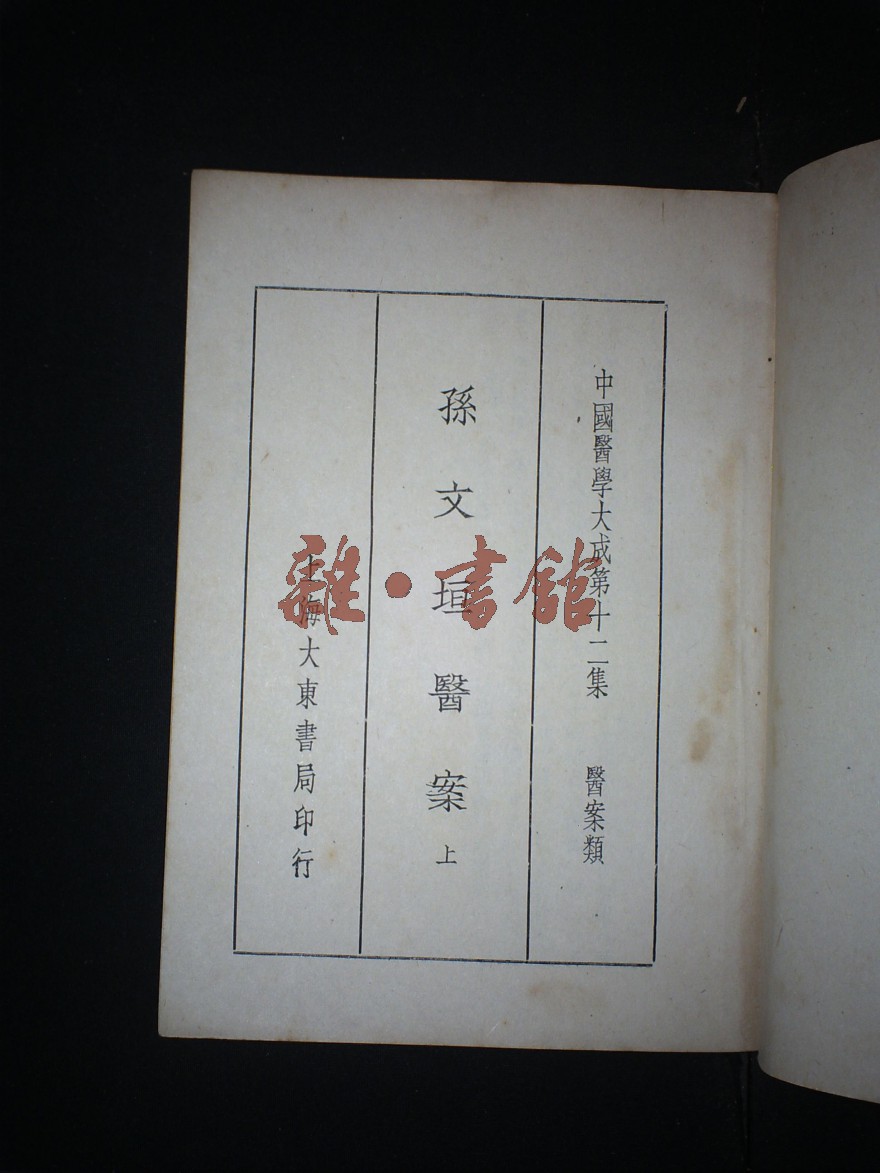 中國醫學大成第十二集 醫案類
孫文垣醫案 上
上海大東書局印行
雜·書館